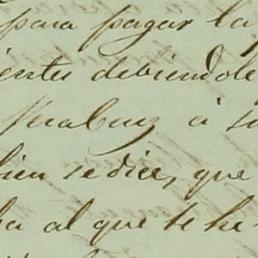 para pagar la
ientes debiendole
à su
bien se dice, que
ba al que le he-